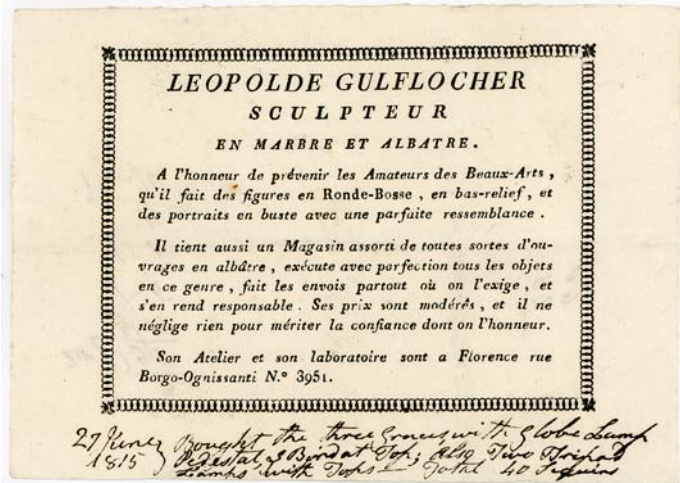 LEOPOLDE GULFLOCHER
SCULPTEUR
EN MARBRE ET ALBATRE.
A l'honneur de prévenir les Amateurs des Beaux-Arts,
qu'il fait des figures en Ronde-Bosse, en bas-relief, et
des portraits en buste avec une parfaite ressemblance.
Il tient aussi un Magasin assorti de toutes sortes d'ou-
vrages en albâtre, exécute avec perfection tous les objets
en ce genre, fait les envois partout où on l'exige, et
s'en rend responsable. Ses prix sont modérés, et il ne
néglige rien pour mériter la confiance dont on l'honneur.
Son Atelier et son laboratoire sont a Florence rue
Borgo-Ognissanti N.° 3951.
27 Bought the three Graces, with Globe Lamp
1815 Pedestal & Bird at Top; also Two Tripod
Lamps with Tops — Total 40 Sequins